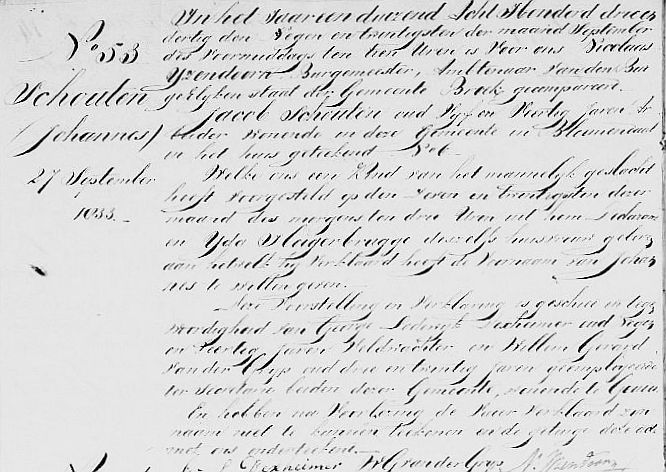 No 53
Schouten
(Johannes)
27 September
1833.
In het Jaar een duizend Acht Honderd drie en
dertig den Negen en twintigsten der maand September
des Voormiddags ten tien Uren is Voor ons Nicolaas
Yzendoorn Burgemeester, Ambtenaar van den Bur
gerlyken staat der Gemeente Broek gecompareerd
Jacob Schouten oud Vyf en Veertig Jaren Ar
beider Wonende in deze Gemeente in Bloemendaal
in het huis geteekend No 6
Welke ons een Kind van het mannelyk geslacht
heeft voorgesteld op den Zeven en twintigsten dezer
maand des morgens ten drie Uren uit hem Declarant
en Yda Hagerbrugge deszelfs huisvrouw geboren
aan hetwelk hy Verklaard heeft de Voornaam van Johan
nes te willen geven.
Deze Voorstelling en Verklaring is geschied in tegen
woordigheid van George Lodewyk Dexheimer oud Negen
en Veertig Jaren Veldwachter en Willem Gerard
van der Gryp oud drie en twintig Jaren geemployeerde
ter Secretarie beiden dezer Gemeente, wonende te Gouda
En hebben na Voorlezing de Vader Verklaard zyn
naam niet te kunnen teekenen en de getuigen deze acte
met ons onderteekend.
L Dexheimer W G van der Gryp N. Yzendoorn